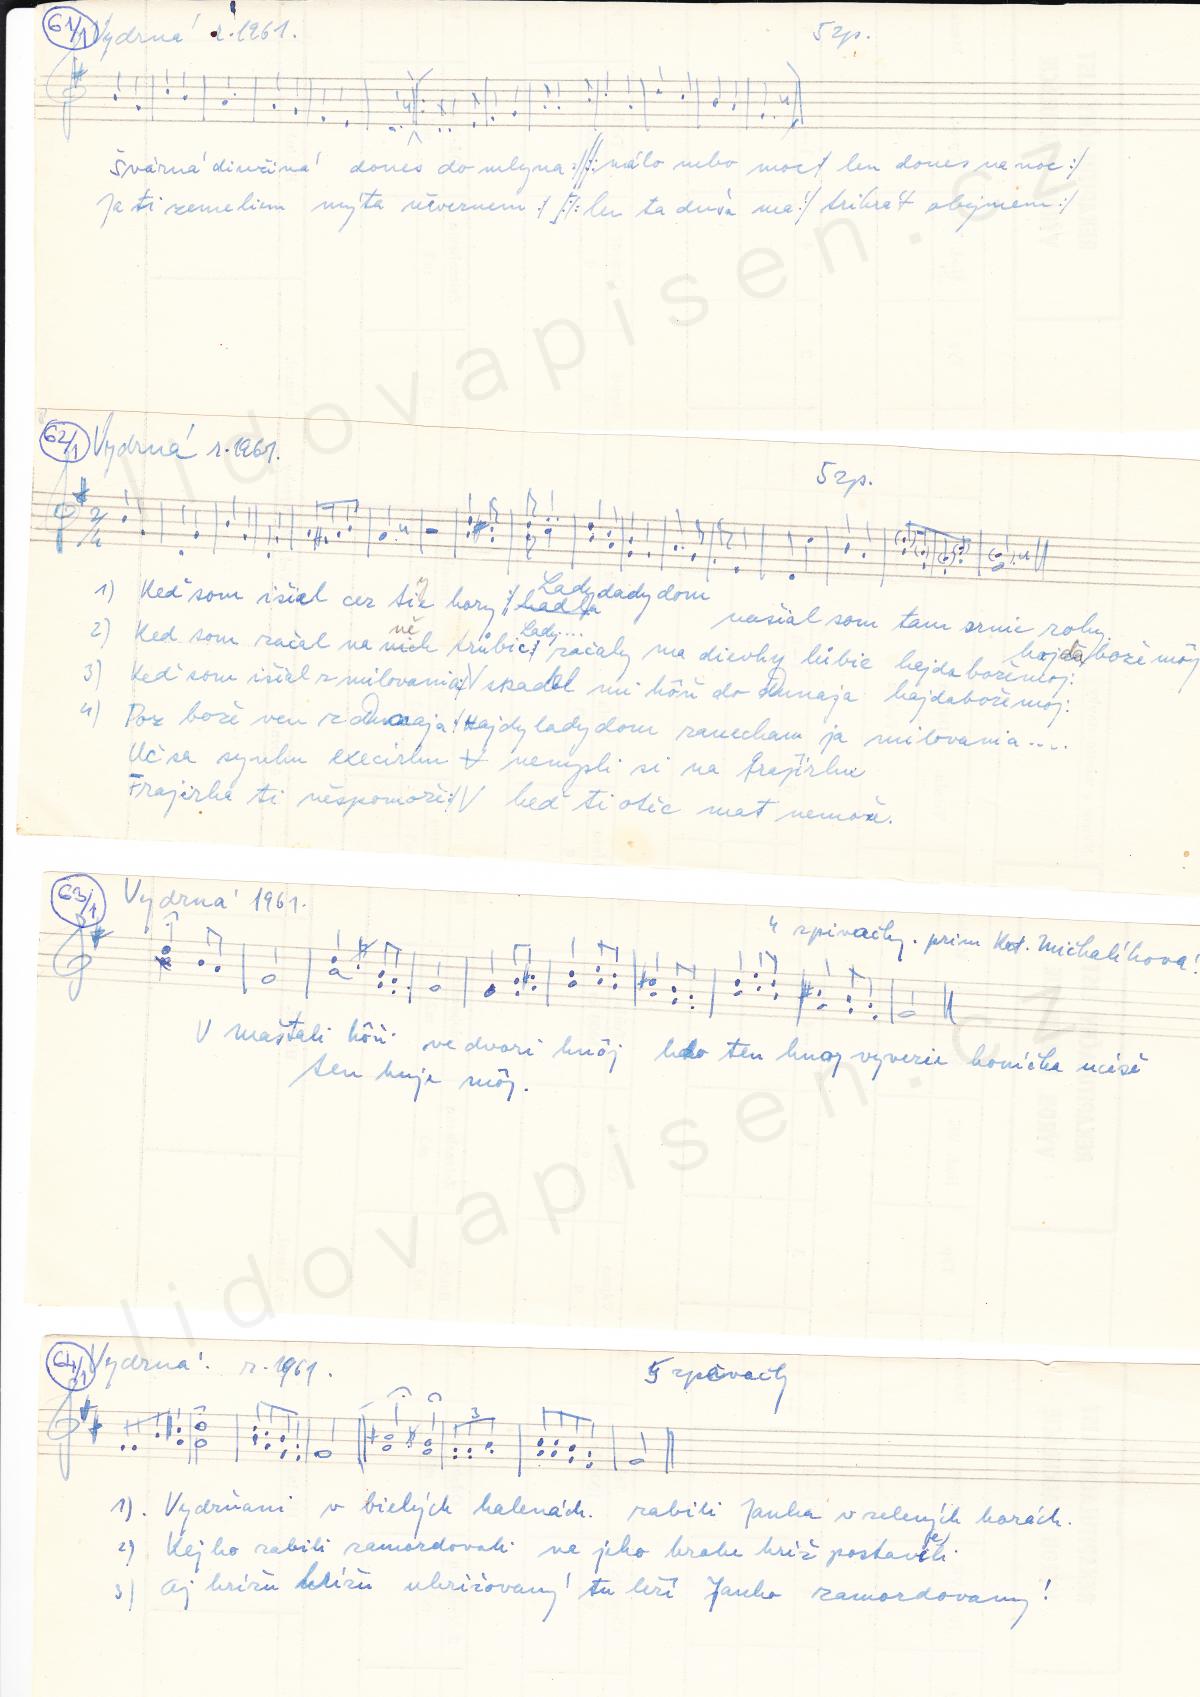 61/1 Vydrná r. 1961. 5 zp.
Švárná dievčiná dones do mlyna :/ /: málo nebo moc / len dones na noc :/
Ja ti zemeliem mýta něvezmem :/ /: len ta duša má :/ trikrát obejmem :/
62/1 Vydrná r. 1961. 5 zp.
1) Keď som išiel cez tie hory :/ Ladydadydom našial som tam srnie rohy
hajda bože môj
2) Keď som začal na ně trúbic :/ Lady.... začaly ma dievky lúbic hajda bože moj:
3) Keď som išiel z milovania :/ V spadol mi kôň do Dunaja hajda bože moj:
4) Poz bože ven z Dunaja :/ Hajdy lady dom zanecham ja milovania ....
Uč sa synku execirku V nemysli si na frajirku
Frajirka ti něspomože :/ V keď ti otěc mat nemože.
63/1 Vydrná 1961.
4 zpivačky. prim Kat. Michalíková!
V maštali kôň ve dvori hnôj kdo ten hnoj vyverie konička
ten huje môj.
64/1 Vydrná. r. 1961. 5 zpěvačky
3
1). Vydrňani v bielých halenách. zabili Janka v zelených horách.
2) Kej ho zabili zamordovali na jeho hrobe kríž postavili.
3) Aj krížu krížu ukrižovaný tu leží Janko zamordovany!
lidovapisen.cz
lidovapisen.cz